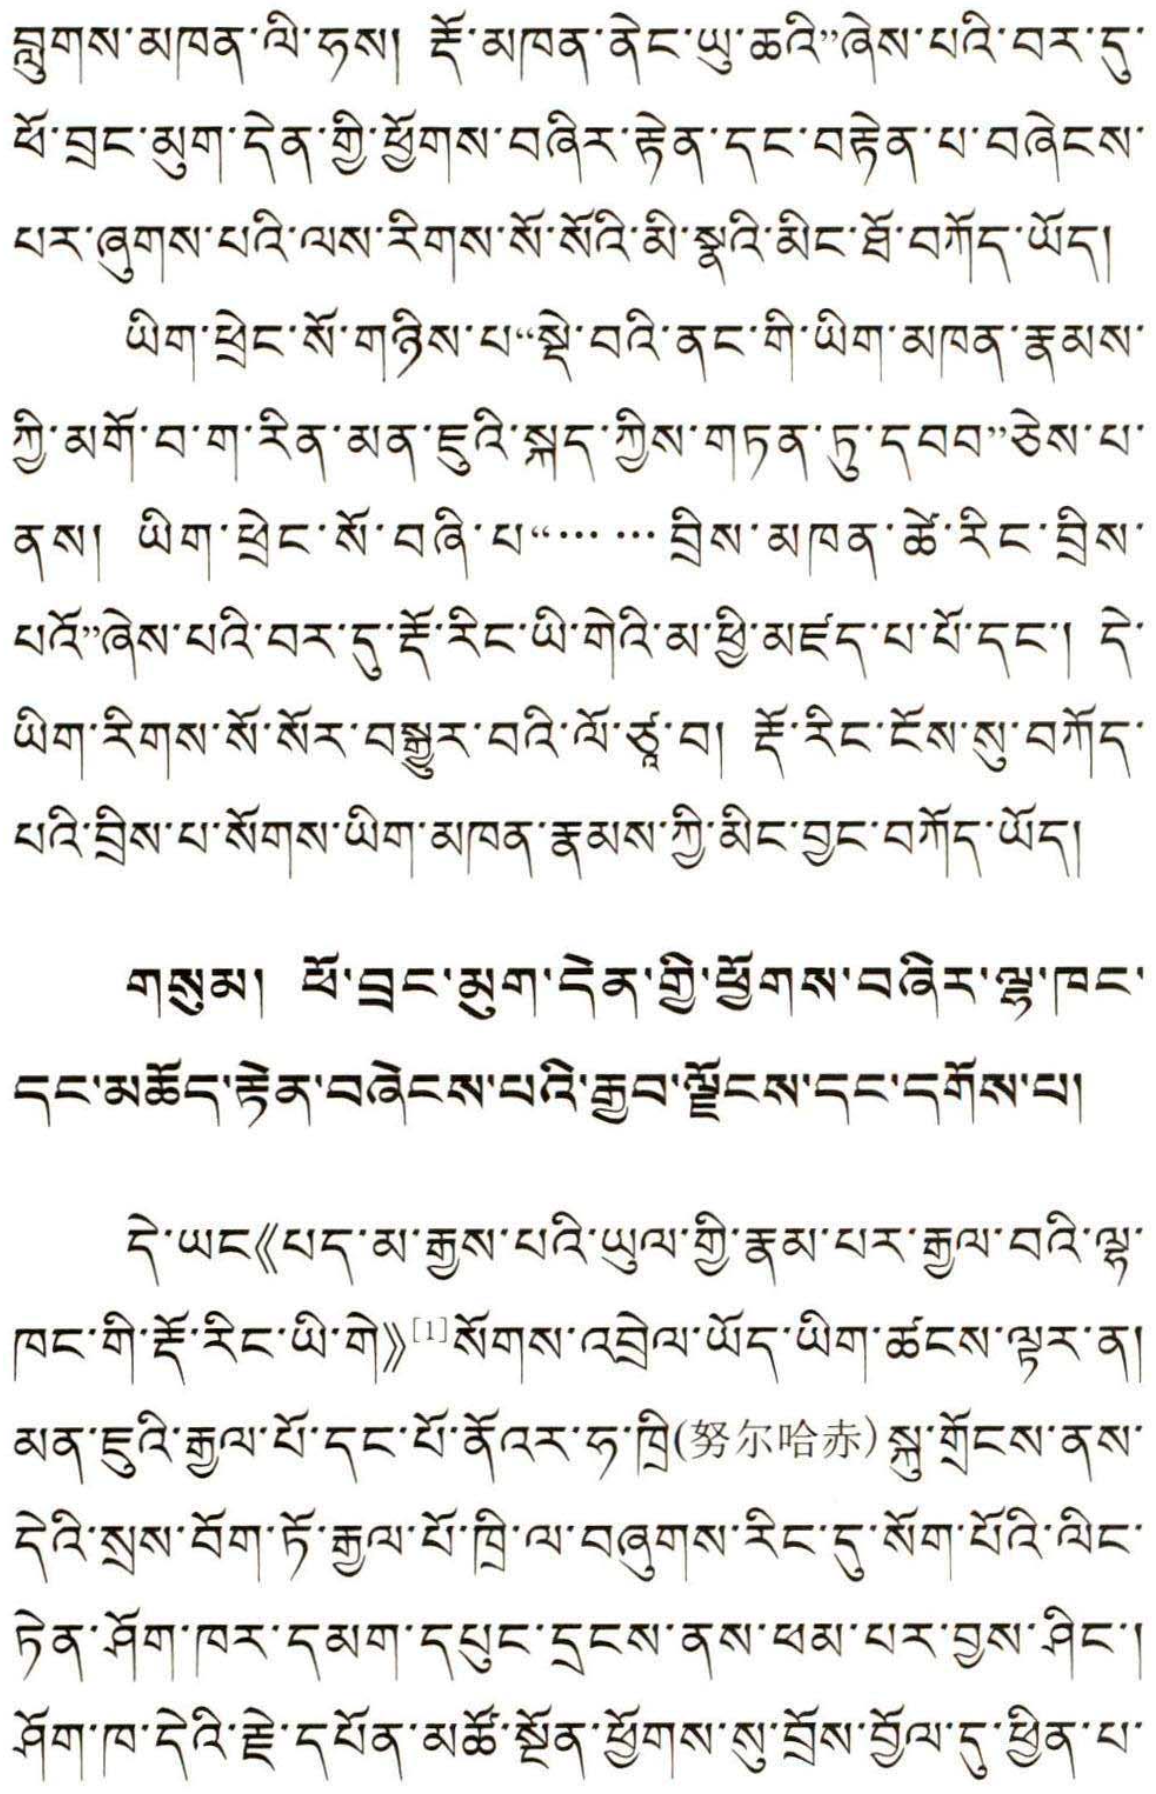 བླུགས་མཁན་ལི་ཧས། རྡོ་མཁན་ནེང་ཡུ་ཆའི”ཞེས་པའི་བར་དུ་
ཕོ་བྲང་མུག་དེན་གྱི་ཕྱོགས་བཞིར་རྟེན་དང་བརྟེན་པ་བཞེངས་
པར་ཞུགས་པའི་ལས་རིགས་སོ་སོའི་མི་སྣའི་མིང་ཐོ་བཀོད་ཡོད།
ཡིག་ཕྲེང་སོ་གཉིས་པ“སྡེ་བའི་ནང་གི་ཡིག་མཁན་རྣམས་
ཀྱི་མགོ་བ་ག་རིན་མན་ཇུའི་སྐད་ཀྱིས་གཏན་ཏུ་དབབ”ཅེས་པ་
ནས། ཡིག་ཕྲེང་སོ་བཞི་པ“…… བྲིས་མཁན་ཚེ་རིང་བྲིས་
པའོ”ཞེས་པའི་བར་དུ་རྡོ་རིང་ཡི་གེའི་མ་ཕྱི་མཛད་པ་པོ་དང་། དེ་
ཡིག་རིགས་སོ་སོར་བསྒྱུར་བའི་ལོ་ཙཱ་བ། རྡོ་རིང་ངོས་སུ་བཀོད་
པའི་བྲིས་པ་སོགས་ཡིག་མཁན་རྣམས་ཀྱི་མིང་བྱང་བཀོད་ཡོད།
གསུམ། ཕོ་བྲང་མུག་དེན་གྱི་ཕྱོགས་བཞིར་ལྷ་ཁང་
དང་མཆོད་རྟེན་བཞེངས་པའི་རྒྱབ་ལྗོངས་དང་དགོས་པ།
དེ་ཡང《པད་མ་རྒྱས་པའི་ཡུལ་གྱི་རྣམ་པར་རྒྱལ་བའི་ལྷ་
ཁང་གི་རྡོ་རིང་ཡི་གེ》[1]སོགས་འབྲེལ་ཡོད་ཡིག་ཚངས་ལྟར་ན།
མན་ཇུའི་རྒྱལ་པོ་དང་པོ་ནོའར་ཧ་ཁྲི(努尔哈赤)སྐུ་གྲོངས་ནས་
དེའི་སྲས་བོག་ཏོ་རྒྱལ་པོ་ཁྲི་ལ་བཞུགས་རིང་དུ་སོག་པོའི་ལིང་
ཏེན་ཤོག་ཁར་དམག་དཔུང་དྲངས་ནས་ཕམ་པར་བྱས་ཤིང་།
ཤོག་ཁ་དེའི་རྗེ་དཔོན་མཚོ་སྔོན་ཕྱོགས་སུ་བྲོས་བྱོལ་དུ་ཕྱིན་པ་